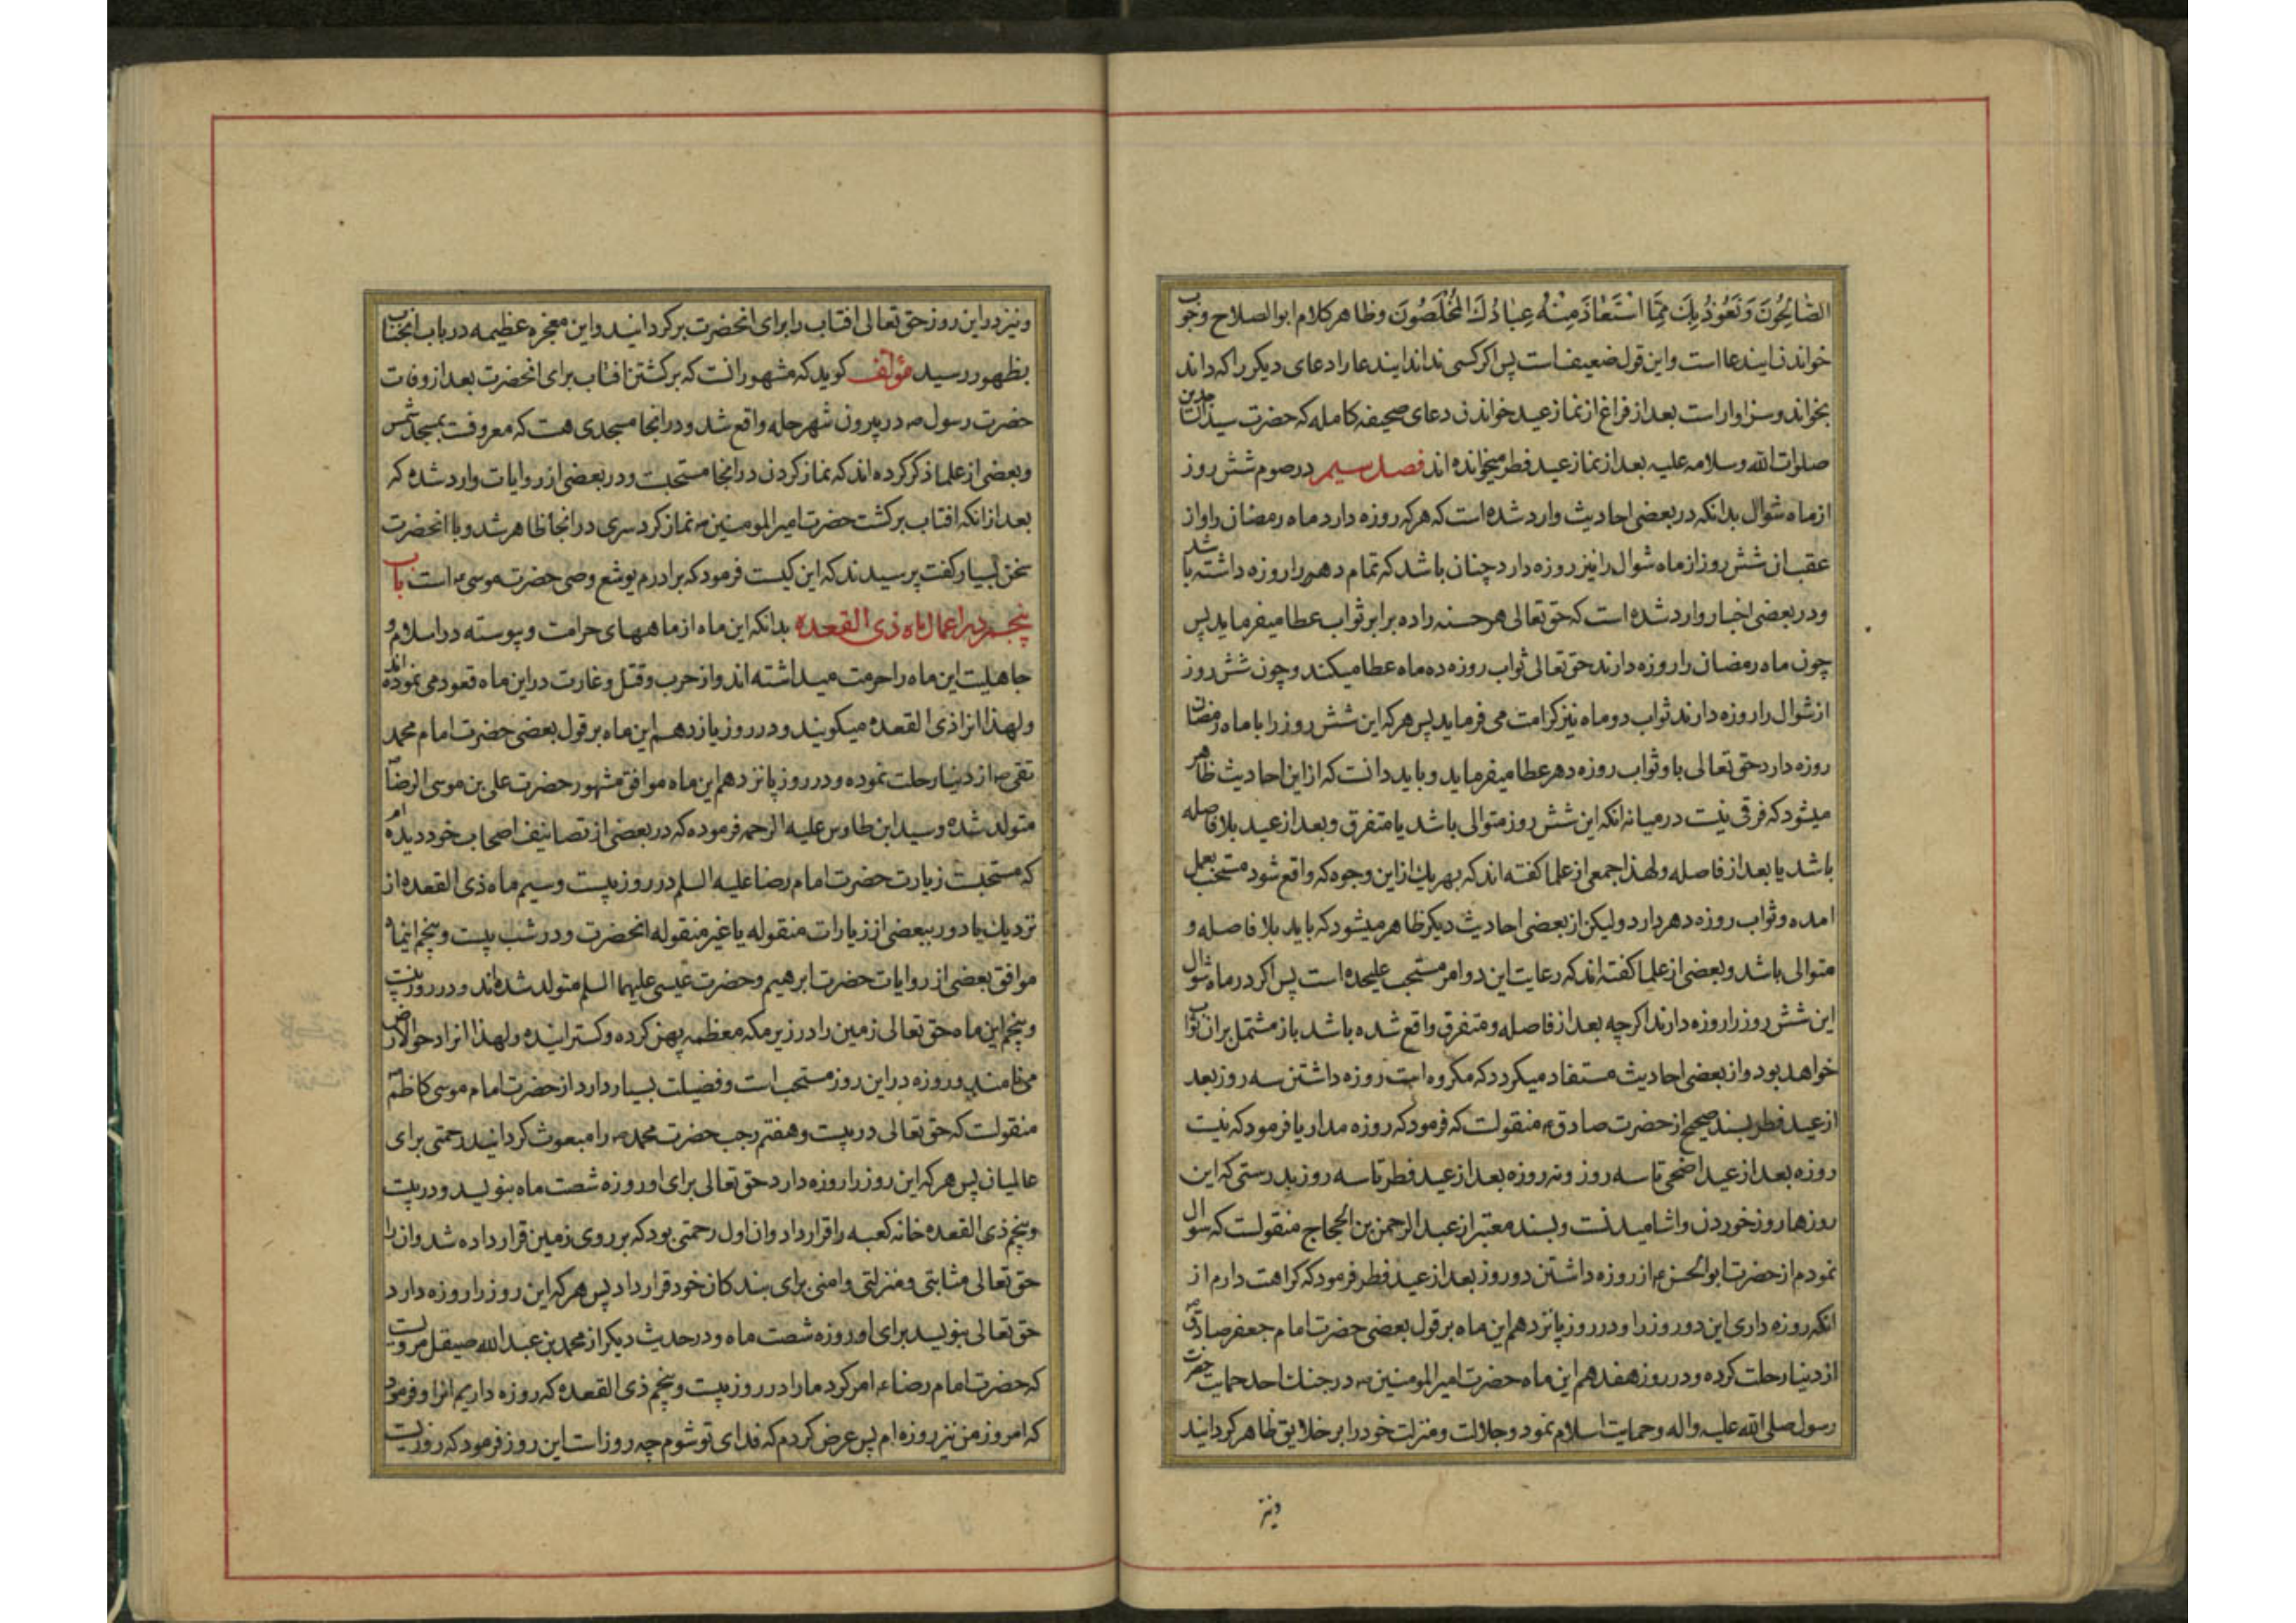 الصّٰالِحُونَ وَنَعُوذُ بِكَ مِمَّا اسْتَعٰاذَ مِنْهُ عِبٰادُكَ الْمُخْلَصُونَ وظاهر کلام ابوالصلاح وجوب
خواندن ایندعا است واین قول ضعیف است پس اکر کسی نداند ایندعا را دعای دیکر را که داند
بخواند وسزاوار است بعد از فراغ از نماز عید خواندن دعای صحیفه کامله که حضرت سید الساجدین
صلوات الله وسلامه علیه بعد از نماز عید فطر میخوانده اند فصل سیم در صوم شش روز
از ماه شوال بدانکه در بعضی احادیث وارد شده است که هر که روزه دارد ماه رمضان را واز
عقب ان شش روز از ماه شوال را نیز روزه دارد چنان باشد که تمام دهر را روزه داشته باشد
ودر بعضی اخبار وارد شده است که حق تعالی هر حسنه را ده برابر ثواب عطا میفرماید پس
چون ماه رمضان را روزه دارند حق تعالی ثواب روزه ده ماه عطا میکند وچون شش روز
از شوال را روزه دارند ثواب دو ماه نیز کرامت می فرماید پس هر که این شش روز را با ماه رمضان
روزه دارد حق تعالی باو ثواب روزه دهر عطا میفرماید وباید دانست که از این احادیث ظاهر
میشود که فرقی نیست در میانه انکه این شش روز متوالی باشد یا متفرق وبعد از عید بلا فاصله
باشد یا بعد از فاصله ولهذا جمعی از علما کفته اند که بهر یك از این وجوه که واقع شود مستحب بعمل
امده وثواب روزه دهر دارد ولیکن از بعضی احادیث دیکر ظاهر میشود که باید بلا فاصله و
متوالی باشد وبعضی از علما کفته اند که رعایت این دو امر مستحب علیحده است پس اکر در ماه شوال
این شش روز را روزه دارند اکرچه بعد از فاصله ومتفرق واقع شده باشد باز مشتمل بر ان ثواب
خواهد بود واز بعضی احادیث مستفاد میکردد که مکروه است روزه داشتن سه روز بعد
از عید فطر بسند صحیح از حضرت صادق ع منقولست که فرمود که روزه مدار یا فرمود که نیست
روزه بعد از عید اضحی تا سه روز ونه روزه بعد از عید فطر تا سه روز بدرستی که این
روزها روز خوردن واشامیدنست وبسند معتبر از عبدالرحمن بن الحجاج منقولست که سوال
نمودم از حضرت ابوالحسن ع از روزه داشتن دو روز بعد از عید فطر فرمود که کراهت دارم از
انکه روزه داری این دو روز را ودر روز پانزدهم این ماه بر قول بعضی حضرت امام جعفر صادق
از دنیا رحلت کرده ودر روز هفدهم این ماه حضرت امیر المومنین در جنك احد حمایت حضرت
رسول صلی الله علیه واله وحمایت اسلام نمود وجلالت ومنزلت خود را بر خلایق ظاهر کردانید
ونیز
ونیز در این روز حق تعالی افتاب را برای انحضرت برکردانید واین معجزه عظیمه در باب انجناب
بظهور رسید مؤلف کوید که مشهور انست که برکشتن افتاب برای انحضرت بعد از وفات
حضرت رسول ص در بیرون شهر حله واقع شد ودر انجا مسجدی هست که معروفست بمسجد شمس
وبعضی از علما ذکر کرده اند که نماز کردن در انجا مستحبست ودر بعضی از روایات وارد شده که
بعد از انکه افتاب برکشت حضرت امیر المومنین نماز کرد سری در انجا ظاهر شد وبا انحضرت
سخن بسیار کفت پرسیدند که این کیست فرمود که برادرم یوشع وصی حضرت موسی است باب
پنجم در اعمال ماه ذی القعده بدانکه این ماه از ماههای حرامست وپیوسته در اسلام و
جاهلیت این ماه را حرمت میداشته اند واز حرب وقتل وغارت در این ماه قعود می نموده اند
ولهذا انرا ذی القعده میکویند ودر روز یازدهم این ماه بر قول بعضی حضرت امام محمد
تقی از دنیا رحلت نموده ودر روز پانزدهم این ماه موافق مشهور حضرت علی بن موسی الرضا
متولد شده وسید ابن طاوس علیه الرحمه فرموده که در بعضی از تصانیف اصحاب خود دیده ام
که مستحبست زیارت حضرت امام رضا علیه السلم در روز بیست وسیم ماه ذی القعده از
نزدیك یا دور ببعضی از زیارات منقوله یا غیر منقوله انحضرت ودر شب بیست وپنجم اینماه
موافق بعضی از روایات حضرت ابرهیم وحضرت عیسی علیهما السلم متولد شده اند ودر روز بیست
وپنجم این ماه حق تعالی زمین را در زیر مکه معظمه پهن کرده وکسترانیده ولهذا انرا دحوالارض
می نامند وروزه در این روز مستحب است وفضیلت بسیار دارد از حضرت امام موسی کاظم
منقولست که حق تعالی در بیست وهفتم رجب حضرت محمد را مبعوث کردانید رحمتی برای
عالمیان پس هر که این روز را روزه دارد حق تعالی برای او روزه شصت ماه بنویسد ودر بیست
وپنجم ذی القعده خانه کعبه را قرار داد وان اول رحمتی بود که بر روی زمین قرار داده شد وان را
حق تعالی مثابتی ومنزلتی وامنی برای بندکان خود قرار داد پس هر که این روز را روزه دارد
حق تعالی بنویسد برای او روزه شصت ماه ودر حدیث دیکر از محمد بن عبدالله صیقل مرویست
که حضرت امام رضا ع امر کرد ما را در روز بیست وپنجم ذی القعده که روزه داریم انرا وفرمود
که امروز من نیز روزه ام پس عرض کردم که فدای تو شوم چه روز است این روز فرمود که روزیست